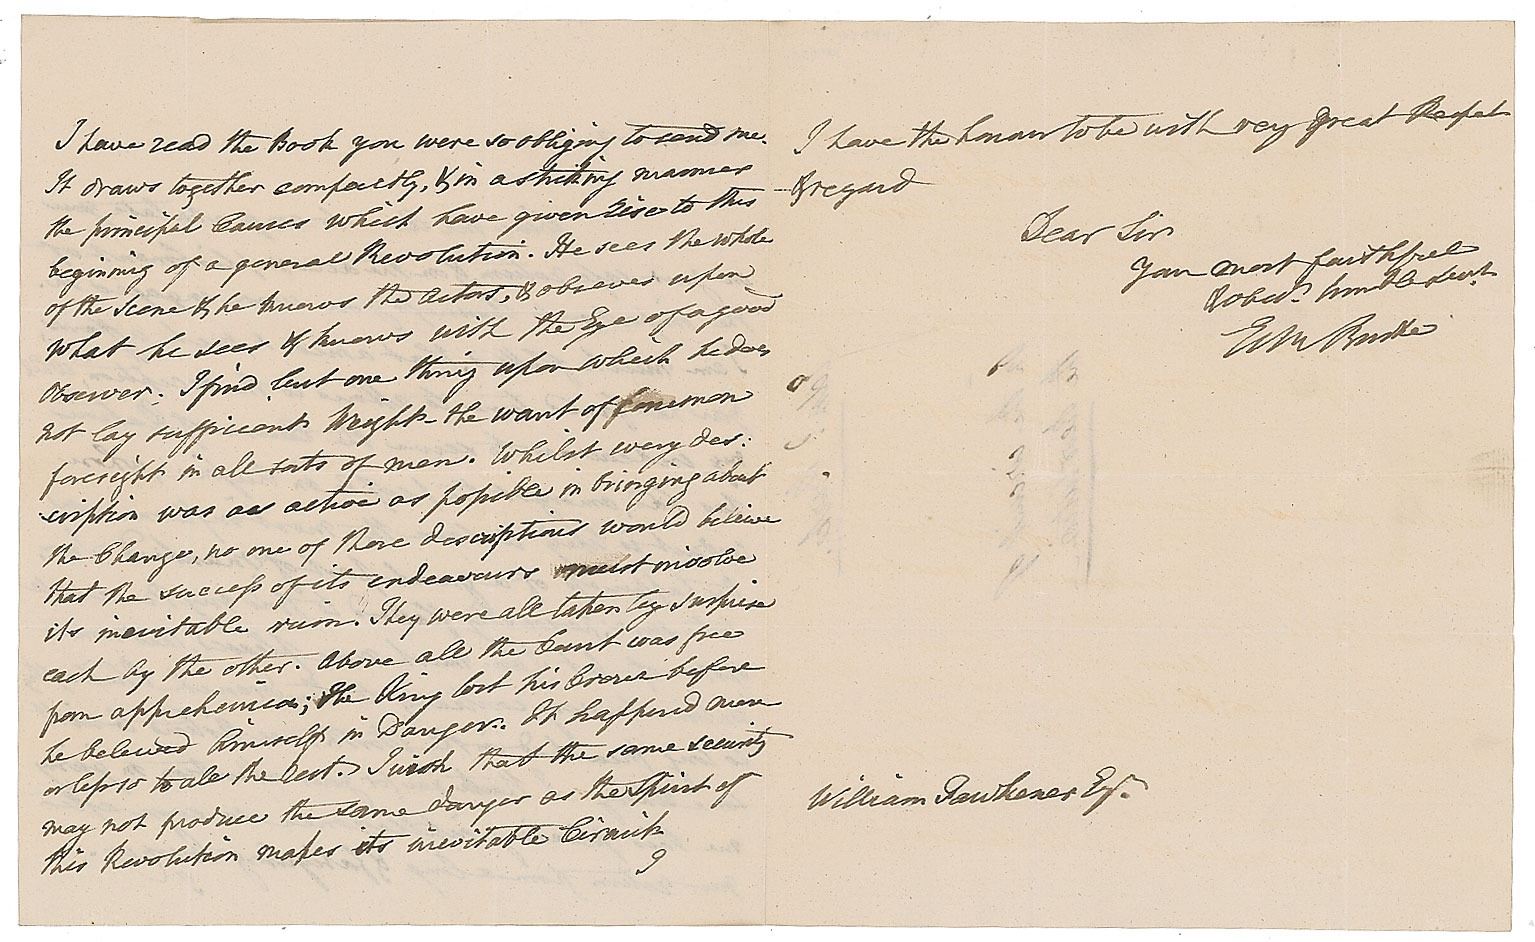 I have read the Book you were so obliging to send me.
It draws together compactly, & in a striking manner
the principal Causes which have given rise to this
beginning of a general Revolution. He sees the whole
of the scene & he knows the actors, & observes upon
what he sees & knows with the Eye of a good
observer. I find but one thing upon which he does
not lay sufficient Weight - the want of common
foresight in all sorts of men. Whilst every des:
cription was as active as possible in bringing about
the Change, no one of those descriptions would believe
that the success of its endeavours must involve
its inevitable ruin. They were all taken by surprise
each by the other. Above all the Court was free
from apprehension; the King lost his Crown before
he beleived himself in Danger. It happend more
or less so to all the rest. I wish that the same security
may not produce the same danger as the Spirit of
this Revolution makes its inevitable Circuit
I
I have the honour to be with very great Respect
& regard
Dear Sir
Your most faithful
& obedt. humble servt.
Edm Burke
William Fawkener Esqr.